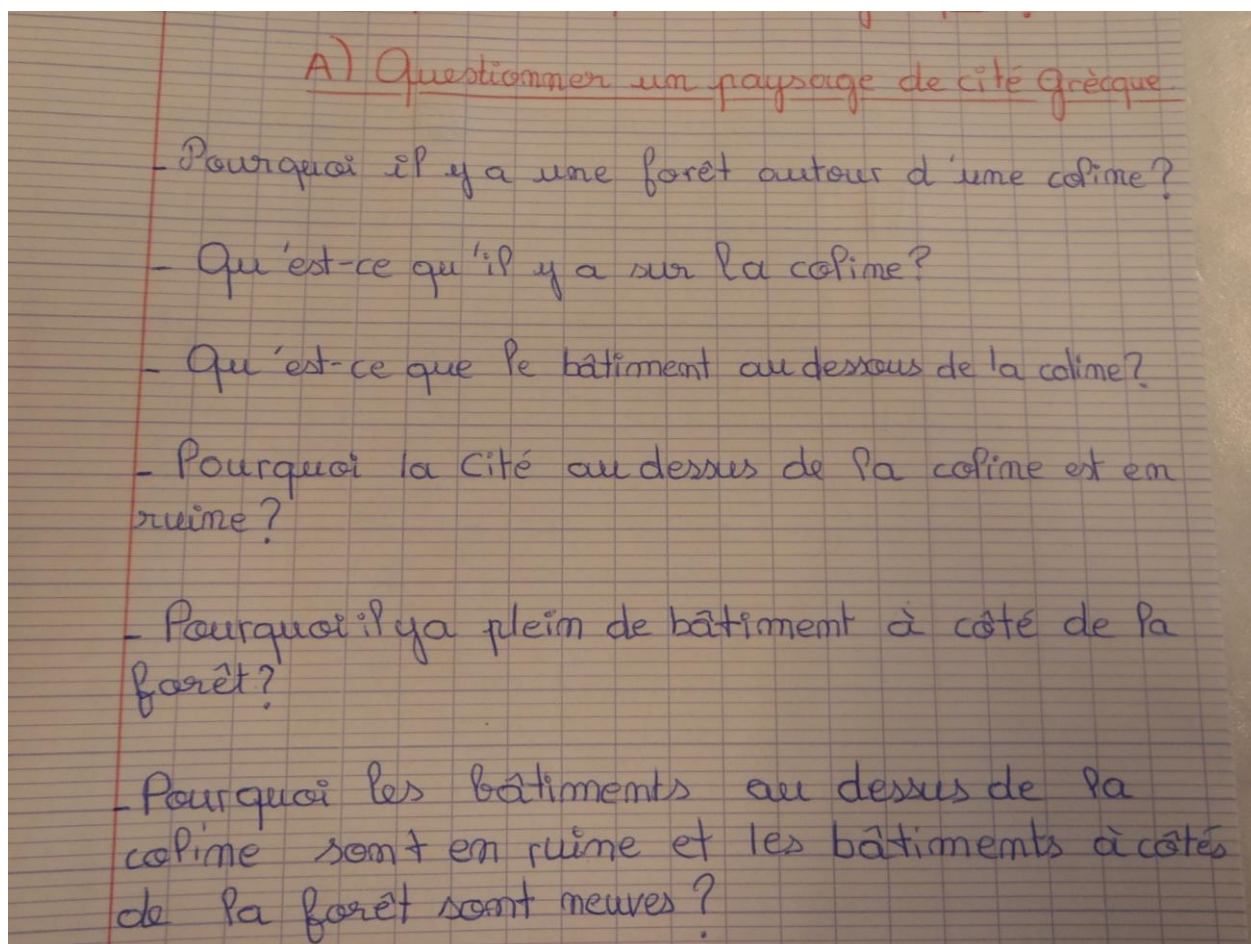 A) Questionner un paysage de cité Grècque
- Pourquoi il y a une forêt autour d'une coline?
- Qu'est-ce qu'il y a sur la coline?
- Qu'est-ce que le bâtiment au dessous de la coline?
- Pourquoi la cité au dessus de la coline est en
ruine?
- Pourquoi il ya plein de bâtiment à côté de la
forêt?
- Pourquoi les bâtiments au dessus de la
coline sont en ruine et les bâtiments à côtés
de la forêt sont neuves?